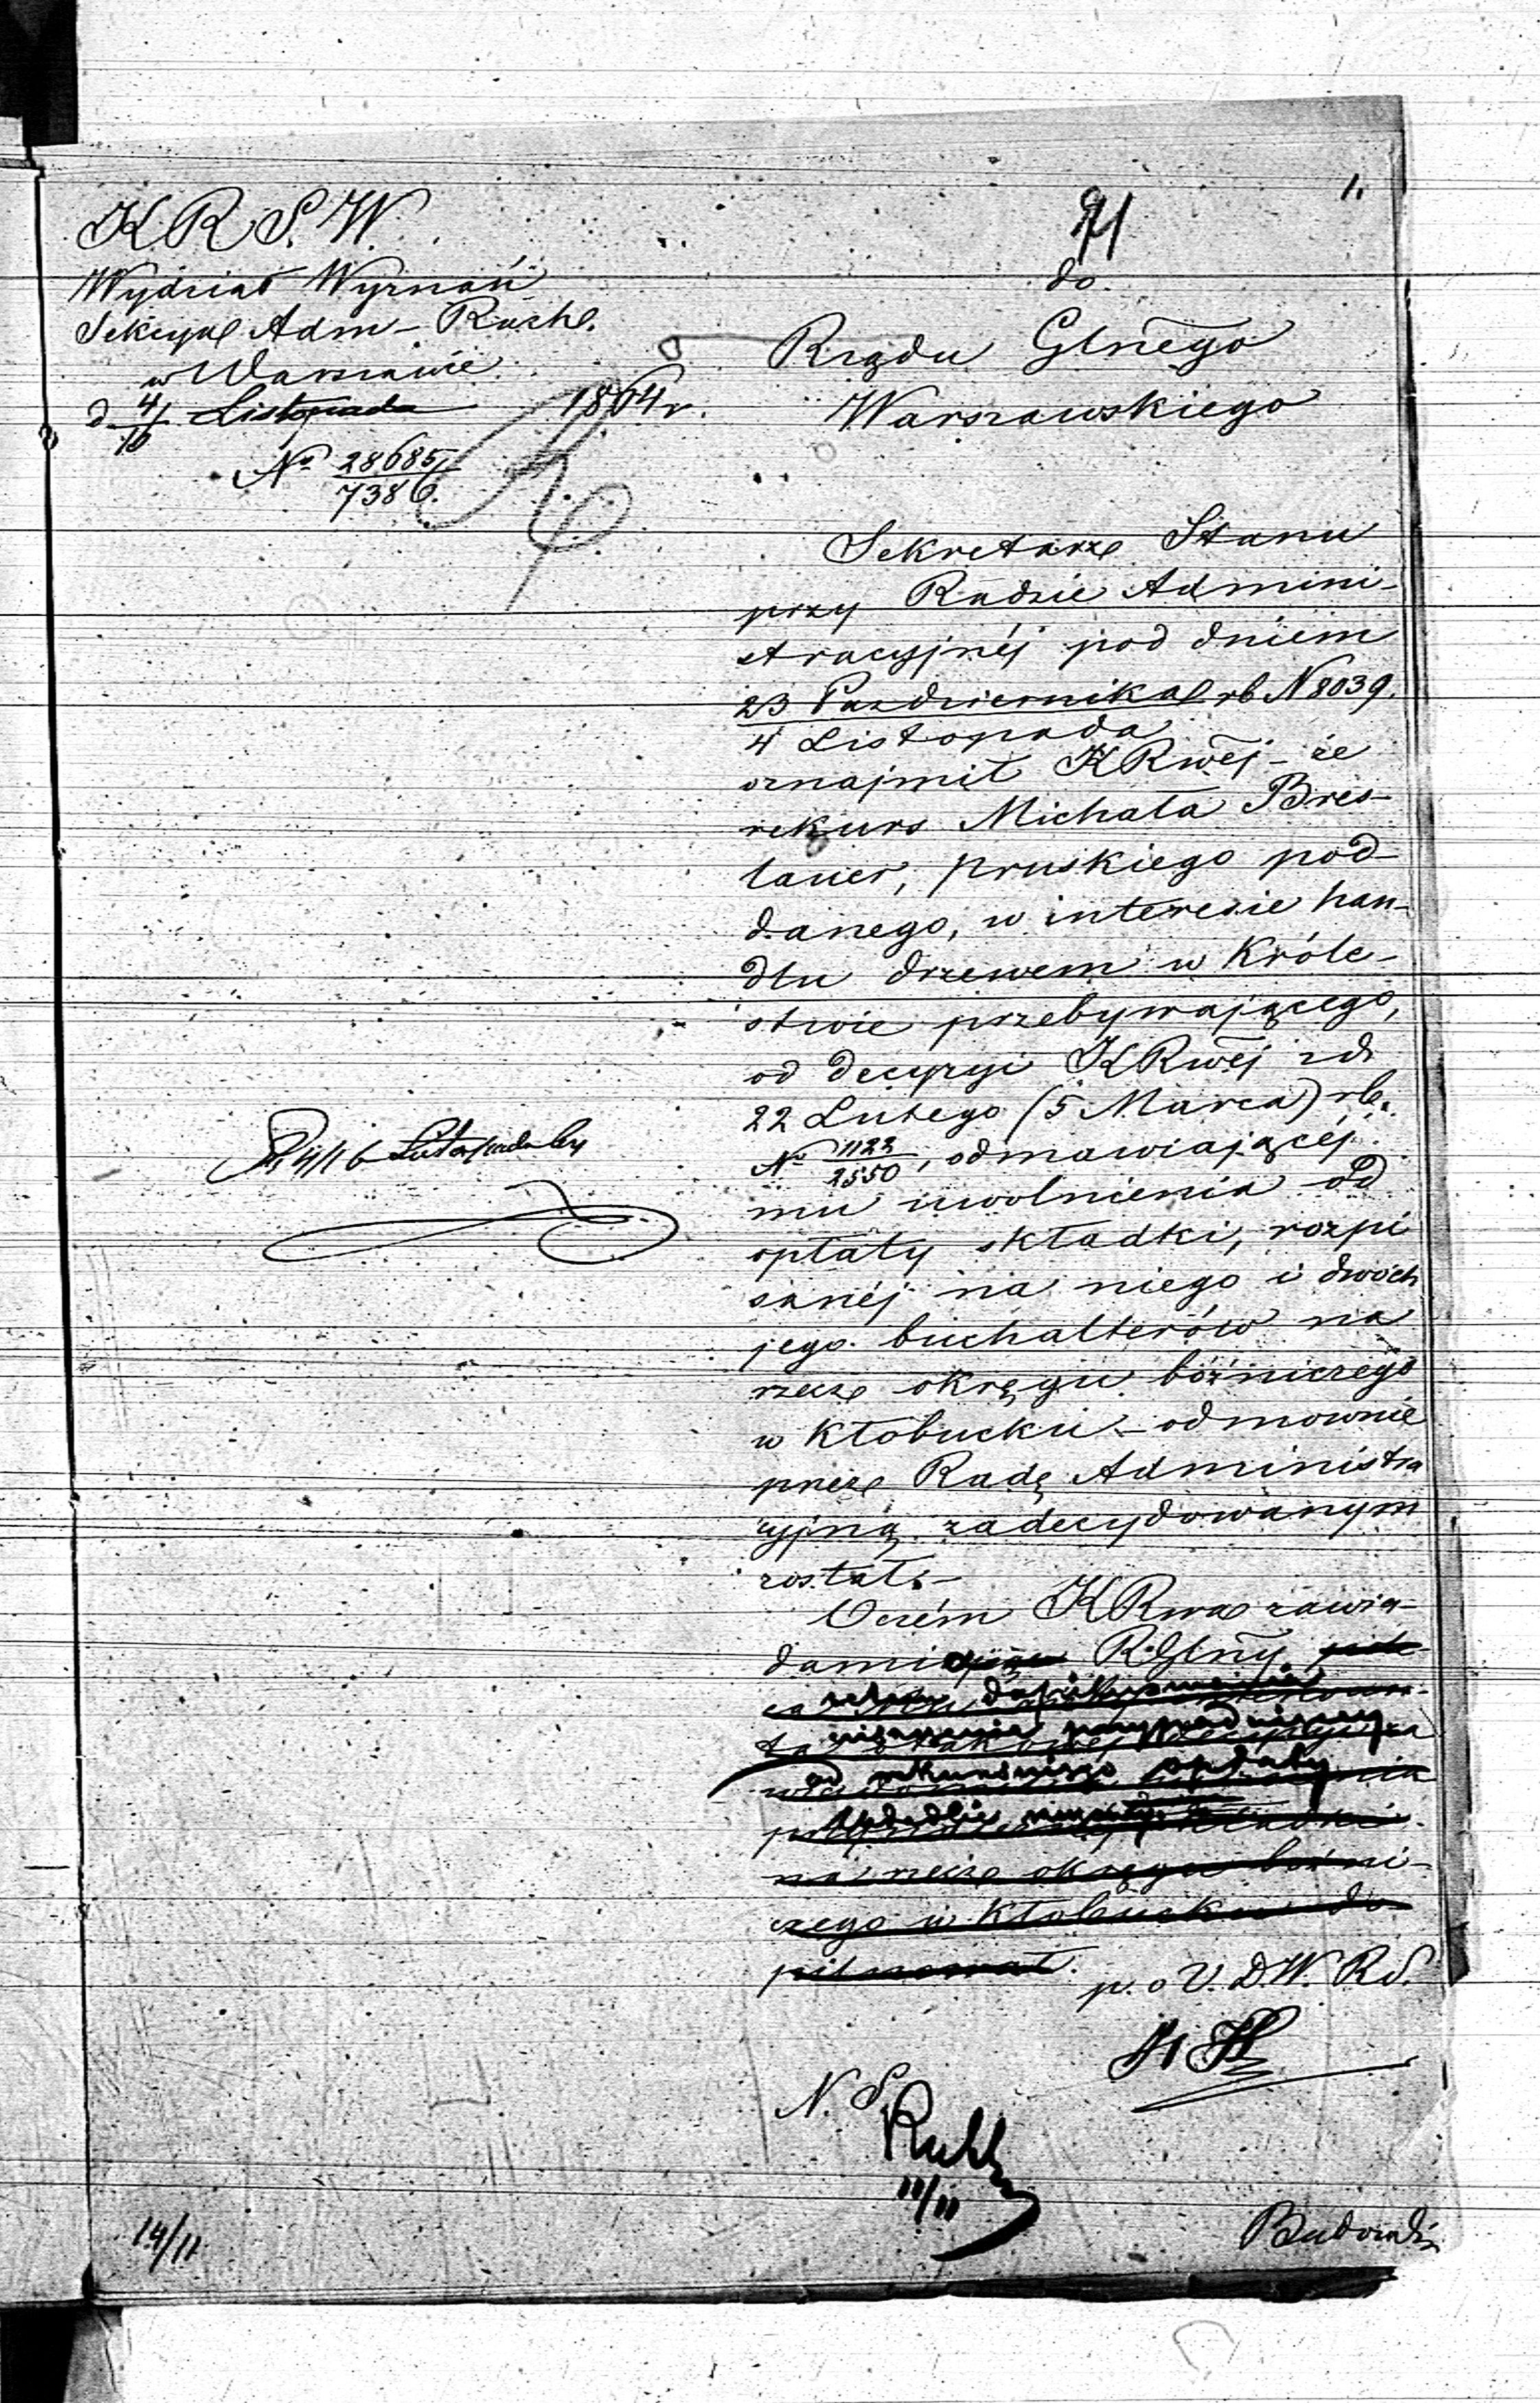 1.
71
K. R. S. W.
Wydział Wyznań
Sekcya Adm-Rach.
w Warszawie
d 4/16 Listopada 1864 r.
No 28685/7386.
do
Rządu Glnego
Warszawskiego
Sekretarz Stanu
przy Radzie Admini-
stracyjnéj pod dniem
23 Października rb N 8039.
4 Listopada
oznajmił KRwéj – że
rekurs Michała Bres-
lauer, pruskiego pod-
danego, w interesie han-
dlu drzewem w Króle-
stwie przebywającego,
od decyzyi KRwéj z d.
22 Lutego (5 Marca) rb.
No 1122/2550, odmawiającéj
mu uwolnienia od
opłaty składki, rozpi
sanéj na niego i dwóch
jego buchalterów na
rzecz okręgu bóżniczego
w Kłobucku – odmownie
przez Radę Administra
cyjną zadecydowanym
został. –
O czém KRwa zawia-
dami R. Glny
na rzecz okręgu bóżni-
czego w Kłobucku do-
pilnował.
p. o V. D. W. R S.
N. S.
11/11
14/11